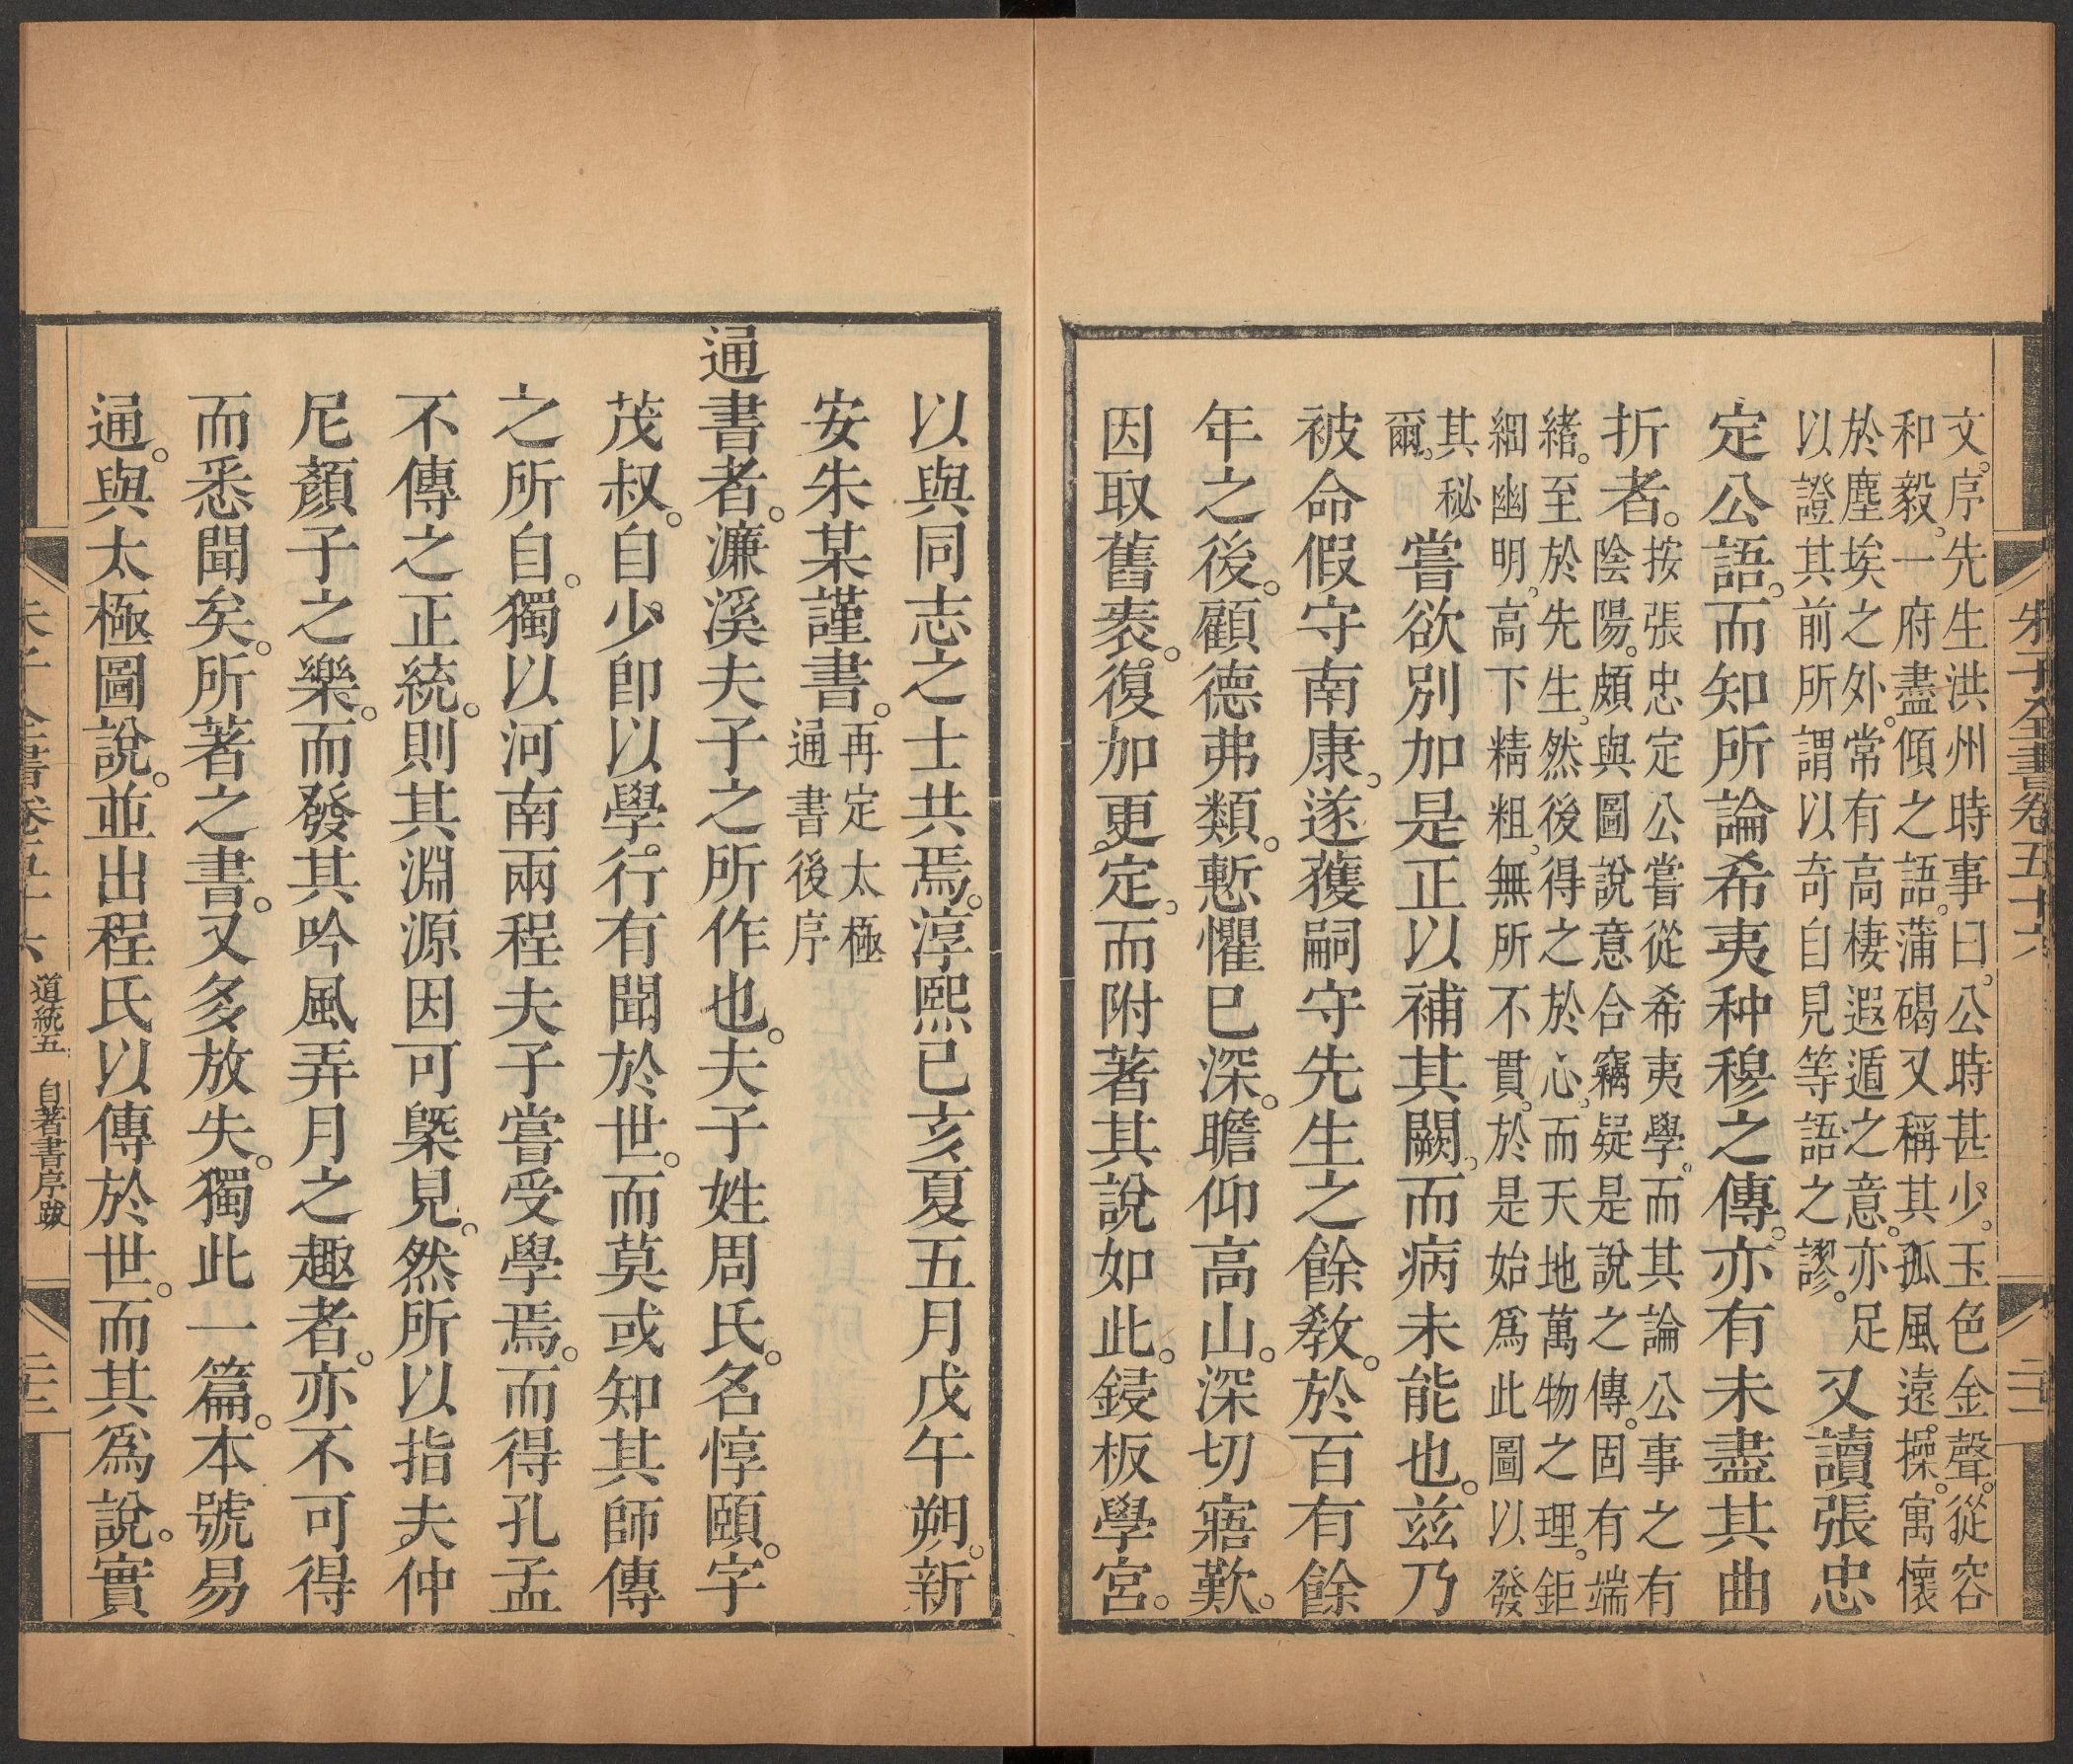 朱子全書卷五十六
文。序先生洪州時事曰。公時甚少。玉色金聲。從容
和毅。一府盡傾之語。蒲碣又稱其孤風遠操。寓懷
於塵埃之外。常有高棲遐遁之意。亦足
以證其前所謂以奇自見等語之謬。
又讀張忠
定公語。而知所論希夷种穆之傳。亦有未盡其曲
折者。
按張忠定公嘗從希夷學。而其論公事之有
陰陽。頗與圖說意合。竊疑是說之傳。固有端
緒。至於先生。然後得之於心。而天地萬物之理。鉅
細幽明。高下精粗。無所不貫。於是始爲此圖以發
其秘
爾。
嘗欲別加是正以補其闕。而病未能也。茲乃
被命假守南康。遂獲嗣守先生之餘敎。於百有餘
年之後。顧德弗類。慙懼已深。瞻仰高山。深切寤歎。
因取舊袠。復加更定。而附著其說如此。鋟板學宮。
以與同志之士共焉。淳熙己亥夏五月戊午朔。新
安朱某謹書。
再定太極
通書後序
通書者。濂溪夫子之所作也。夫子姓周氏。名惇頤。字
茂叔。自少卽以學行有聞於世。而莫或知其師傳
之所自。獨以河南兩程夫子嘗受學焉。而得孔孟
不傳之正統。則其淵源因可槩見。然所以指夫仲
尼顏子之樂。而發其吟風弄月之趣者。亦不可得
而悉聞矣。所著之書。又多放失。獨此一篇。本號易
通。與太極圖說。並出程氏以傳於世。而其爲說。實
朱子全書卷五十六
道統五
自著書序跋